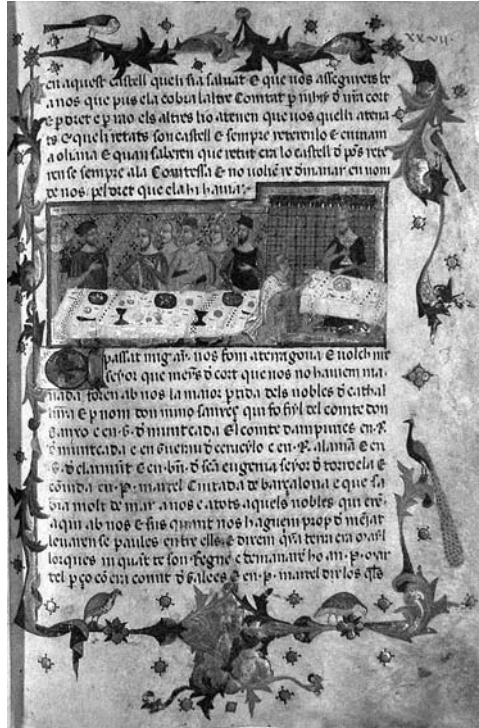 xxvii.
en aquest castell queli sia saluat E que uos assegurets be
a nos que pus ela cobra laltre Comtat
E per dret e per rao els altres ho atenen que uos quelli atena
ts E queli retats son castell E sempre reterenlo E entram
a oliana E quan saberen que retut era lo castell
ren se sempre ala Comtessa E no uolien romanir en nom
de nos pel dret que ela hi hauia.
passat mig any nos fom a terragona E uolch nre
seyor que meyns d cort que nos no hauiem ma
nada foren ab nos la maior partida dels nobles d cathal
unya E per nom don nuno sanxes qui fo fiyl del comte don
sanxo e en .G. d muntcada El comte dampuries en .R.
d muntcada e en Guerau d cerueylo e en .R. alaman E en
.G. d claramunt E en .bn. d sca eugenia seyor d torroela E
en .P. martel Ciutada de barçalona E que sa
bia molt de mar a nos e a tots aquels nobles qui eren
aqui ab nos E sus quant nos haguem prop d menjat
leuaren se paules entre elles E direm quina terra era
lorques son Regne e
tel per ço com era comit d galees E en .P. martel dix los